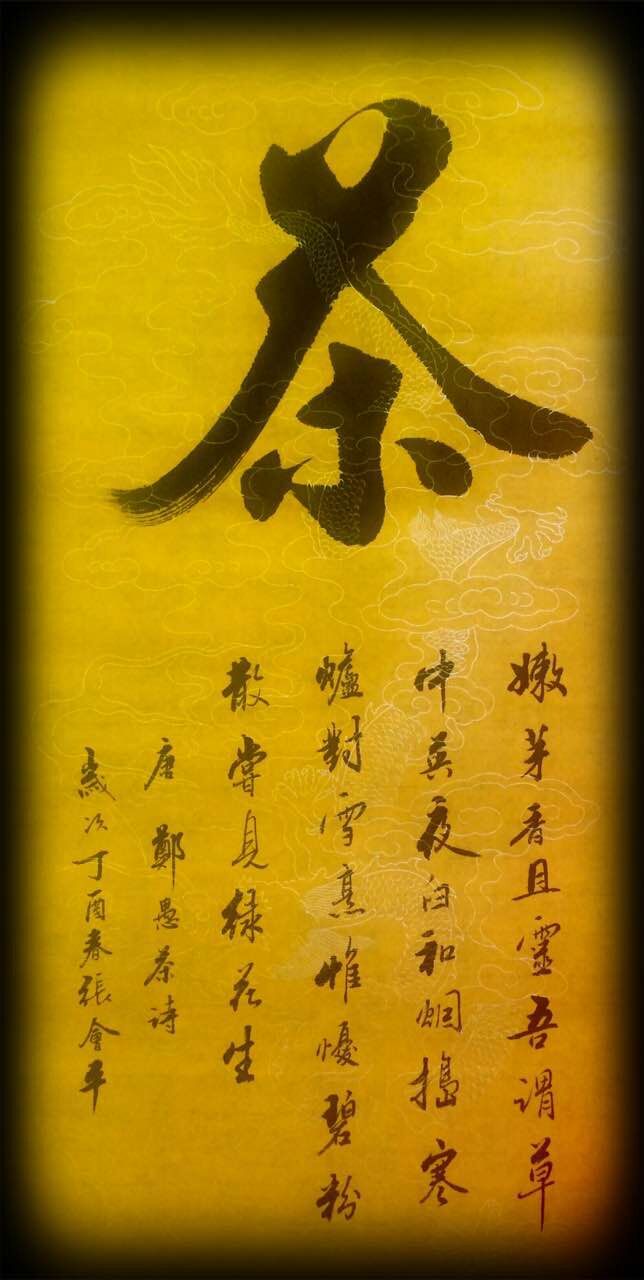 茶
嫩芽香且靈吾謂草
中英夜臼和烟搗寒
爐對雪烹惟憂碧粉
散嘗見緑花生
唐 鄭愚茶詩
歲次丁酉春張會平